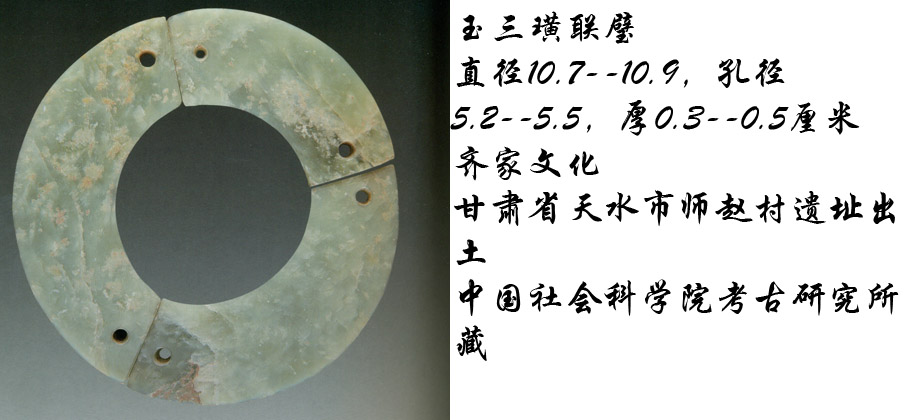 玉三璜联璧
直径10.7--10.9，孔径
5.2--5.5，厚0.3--0.5厘米
齐家文化
甘肃省天水市师赵村遗址出
土
中国社会科学院考古研究所
藏